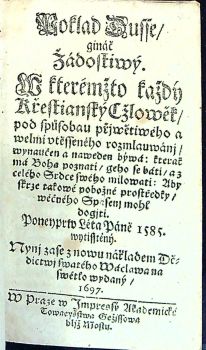 Poklad Dusse/
gináč
Žádostiwý.
W kterémžto každý
Křestianský Cžlowěk/
pod spůsobau přjwětiwého a
welmi vtěsseného rozmlauwánj/
wynaučen a naweden býwá: kterak
má Boha poznati/ geho se báti/ a z
celého Srdce swého milowati: Aby
skrze takowé pobožné prostředky/
wěčného Spasenj mohl
dogjti.
Poneyprw Léta Páně 1585.
wytisstěný.
Nynj zase z nowu nákladem Dě-
dictwj swatého Wáclawa na
swětlo wydaný/
1697.
W Praze w Impressý Akademické
Towaryšstwa Gežíssowa
bljž Mostu.